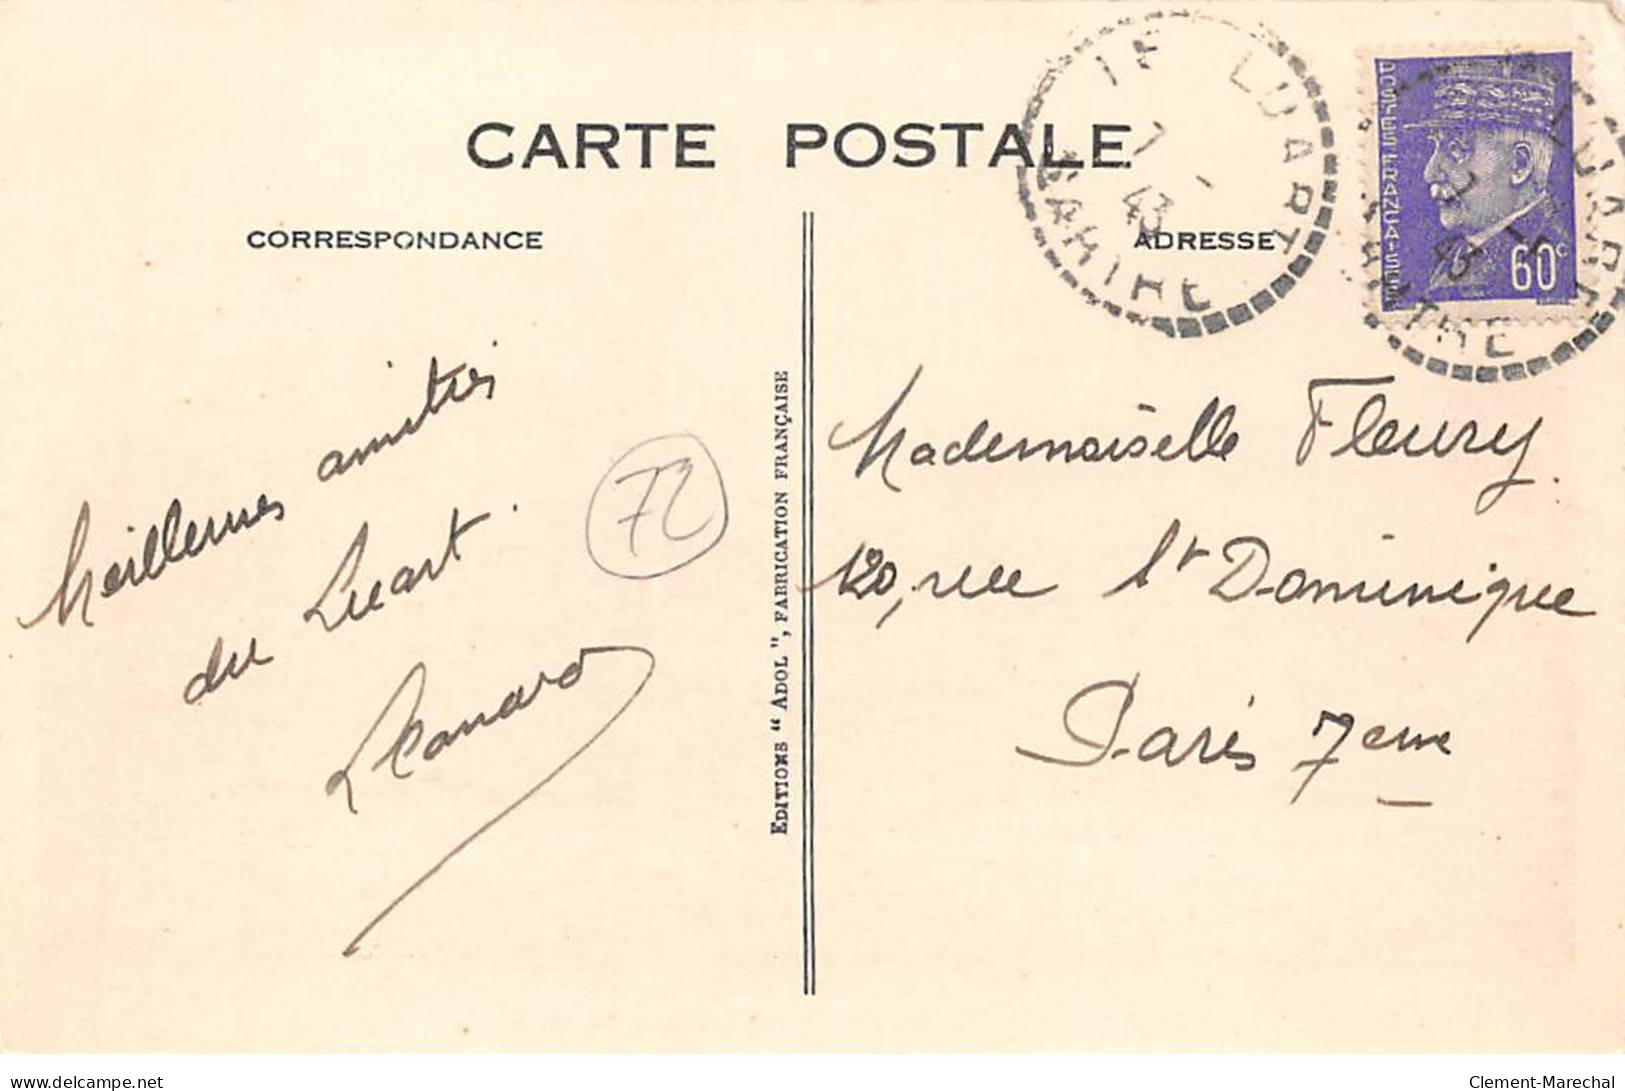 CARTE POSTALE
CORRESPONDANCE
ADRESSE
LE LUART
7 - 43
SARTHE
POSTES FRANÇAISES
60c
LUART
SARTHE
Meilleures amitiés
du Luart.
72
EDITIONS "ADOL", FABRICATION FRANÇAISE
Mademoiselle Fleury.
120, rue St Dominique
Paris 7eme
delcampe.net
Clement-Marechal